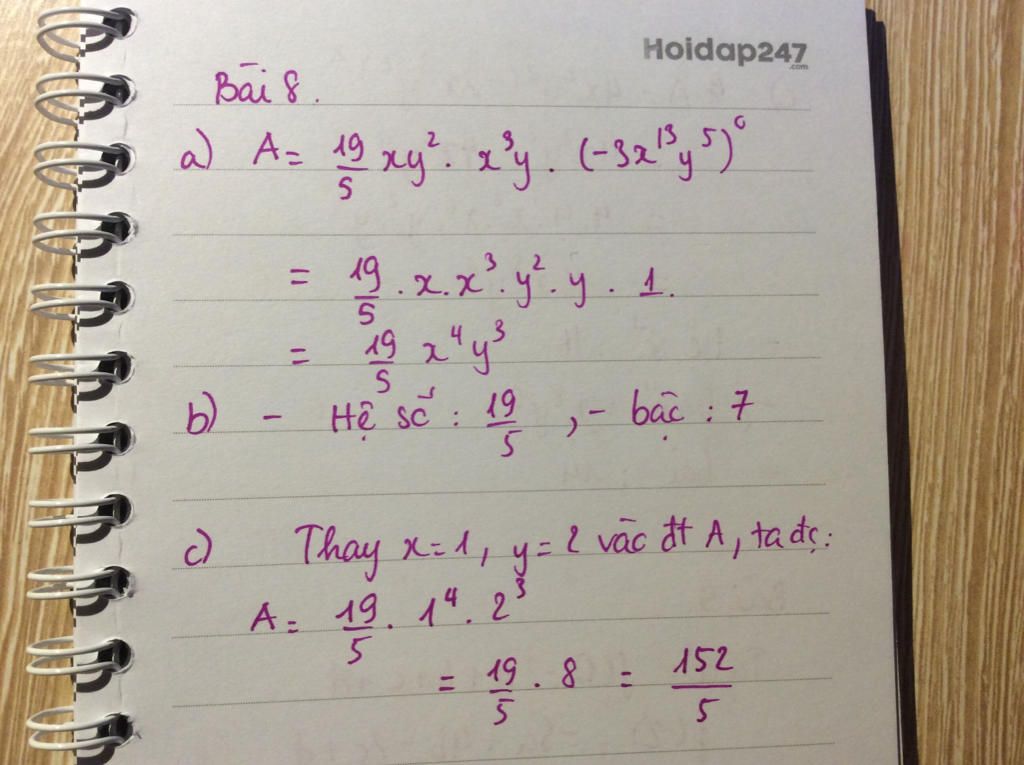 Hoidap247
.com
Bài 8.
a) A = 19/5 xy² . x³y . (-3x¹³y⁵)⁰
= 19/5 . x . x³ . y² . y . 1.
= 19/5 x⁴y³
b) - Hệ số : 19/5 , - bậc : 7
c) Thay x = 1, y = 2 vào đt A, ta đc:
A = 19/5 . 1⁴ . 2³
= 19/5 . 8 = 152/5